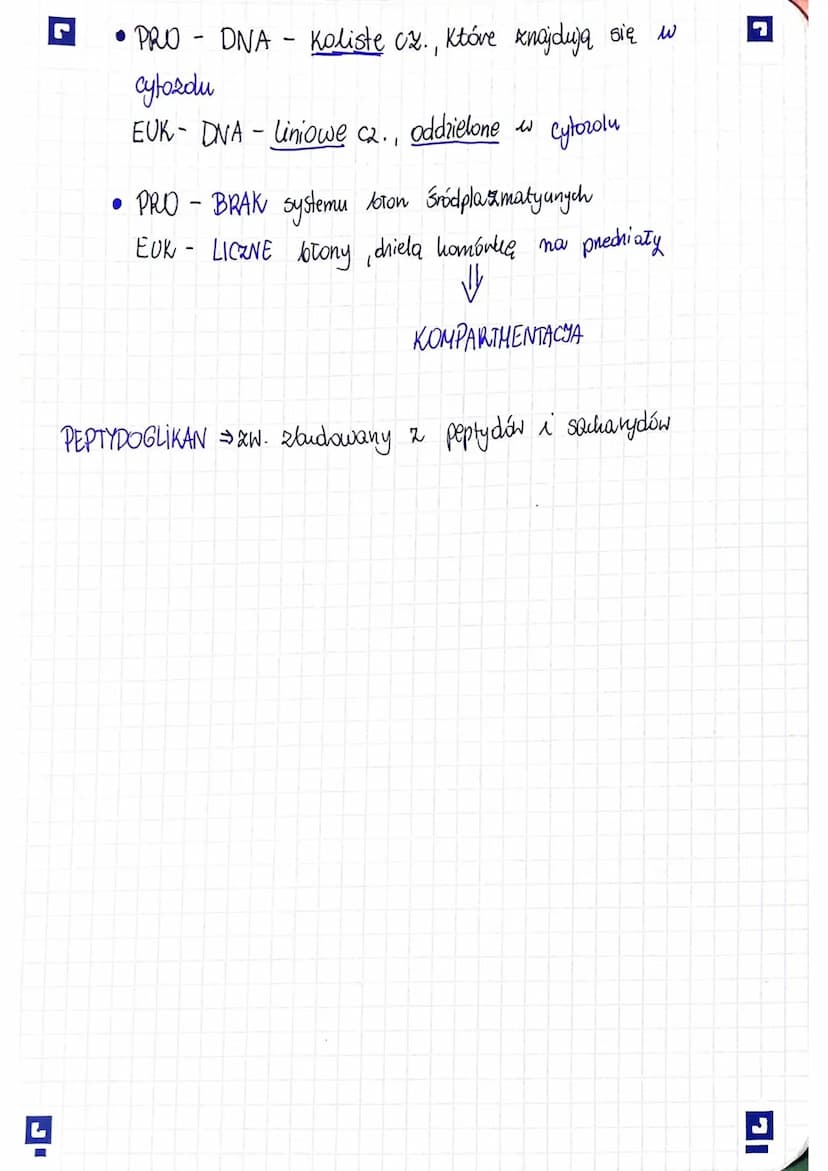 • PRO - DNA - Koliste cz., które znajdują się w
cytozolu
EUK - DNA - liniowe cz., oddzielone w cytozolu
• PRO - BRAK systemu błon śródplazmatycznych
EUK - LICZNE błony, dzielą komórkę na przedziały
⇓
KOMPARTMENTACJA
PEPTYDOGLIKAN ⇒ zw. zbudowany z peptydów i sacharydów